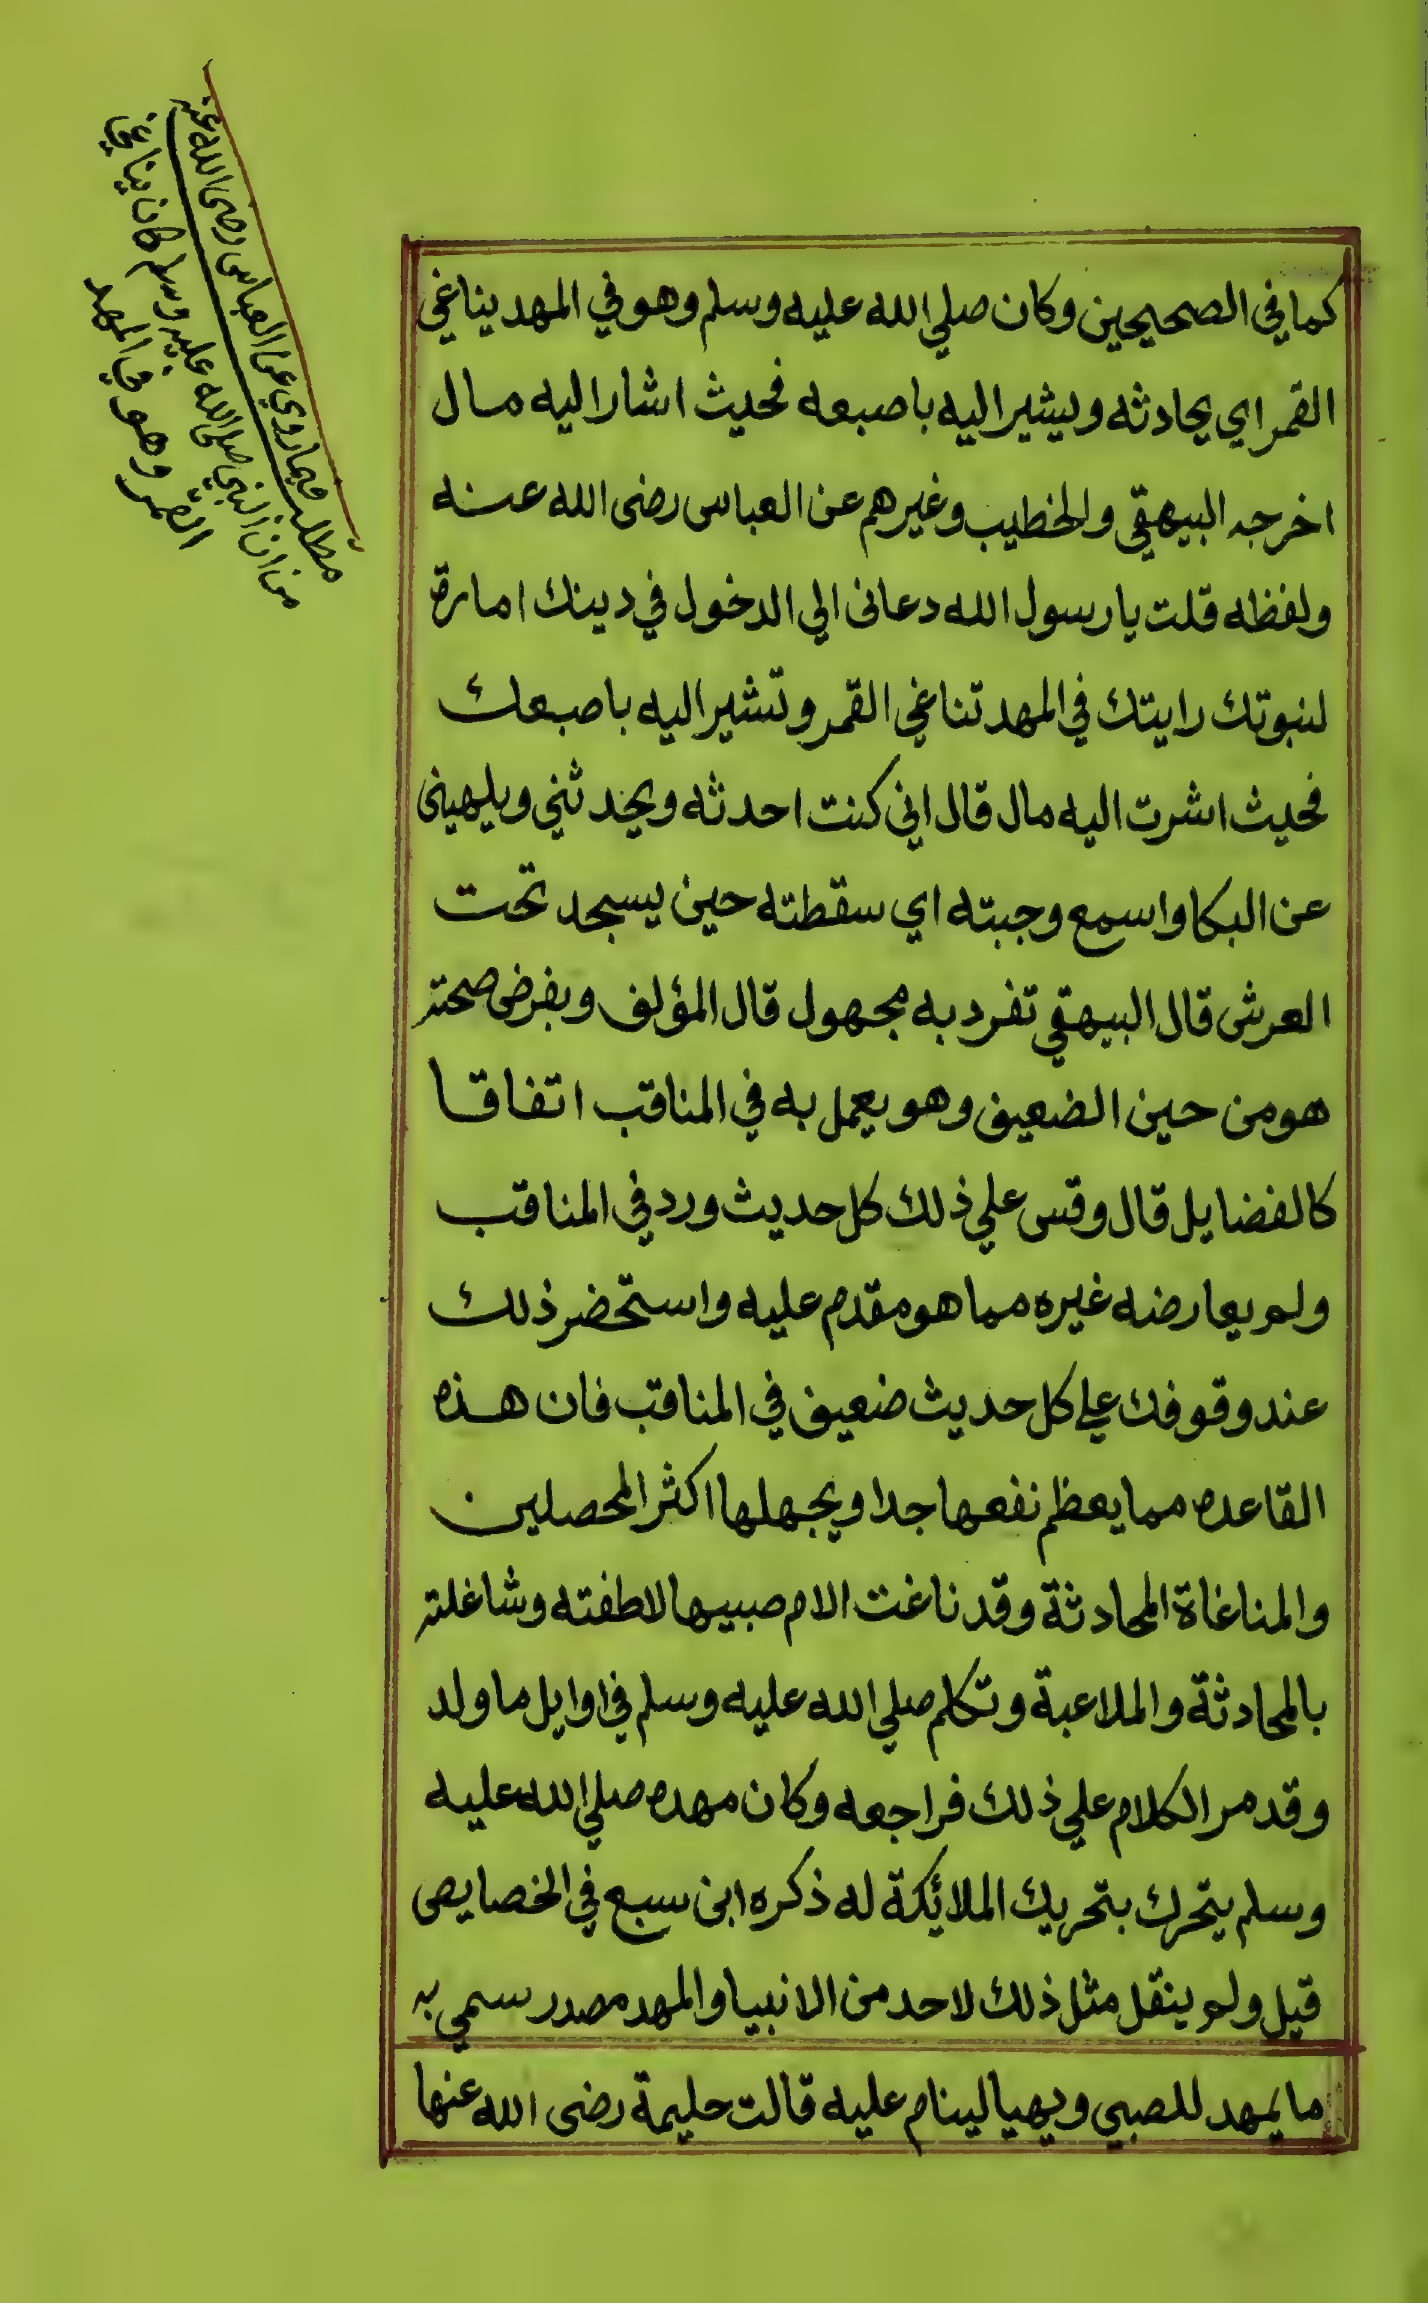 كما في الصحيحين وكان صلي الله عليه وسلم وهو في المهد يناغي
القمر اي يحادثه ويشير اليه باصبعه فحيث اشار اليه مال
اخرجه البيهقي والخطيب وغيرهم عن العباس رضى الله عنه
ولفظه قلت يا رسول الله دعانى الي الدخول في دينك امارة
لنبوتك رايتك في المهد تناغي القمر وتشير اليه باصبعك
فحيث اشرت اليه مال قال اني كنت احدثه ويحدثني ويلهينى
عن البكا واسمع وجبته اي سقطته حين يسجد تحت
العرش قال البيهقي تفرد به مجهول قال المؤلف وبفرض صحته
هو من حين الضعيف وهو يعمل به في المناقب اتفاقا
كالفضايل قال وقس علي ذلك كل حديث ورد في المناقب
ولم يعارضه غيره مما هو مقدم عليه واستحضر ذلك
عند وقوفك علي كل حديث ضعيف في المناقب فان هذه
القاعده مما يعظم نفعها جدا ويجهلها اكثر المحصلين
والمناغاة المحادثة وقد ناغت الام صبيها لاطفته وشاغلته
بالمحادثة والملاعبة وتكلم صلي الله عليه وسلم في اوايل ما ولد
وقد مر الكلام علي ذلك فراجعه وكان مهده صلي الله عليه
وسلم يتحرك بتحريك الملائكة له ذكره ابن سبع في الخصايص
قيل ولم ينقل مثل ذلك لاحد من الانبيا والمهد مصدر سمي به
ما يمهد للصبي ويهيا لينام عليه قالت حليمة رضى الله عنها
مطلب فيما روي عن العباس رضى الله عنه
من ان النبي صلى الله عليه وسلم كان يناغي
القمر وهو في المهد